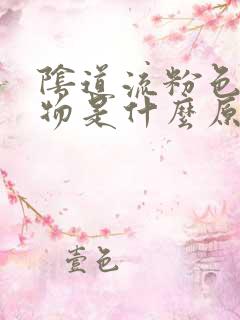 陰道流粉色
物是什麼原
壹色